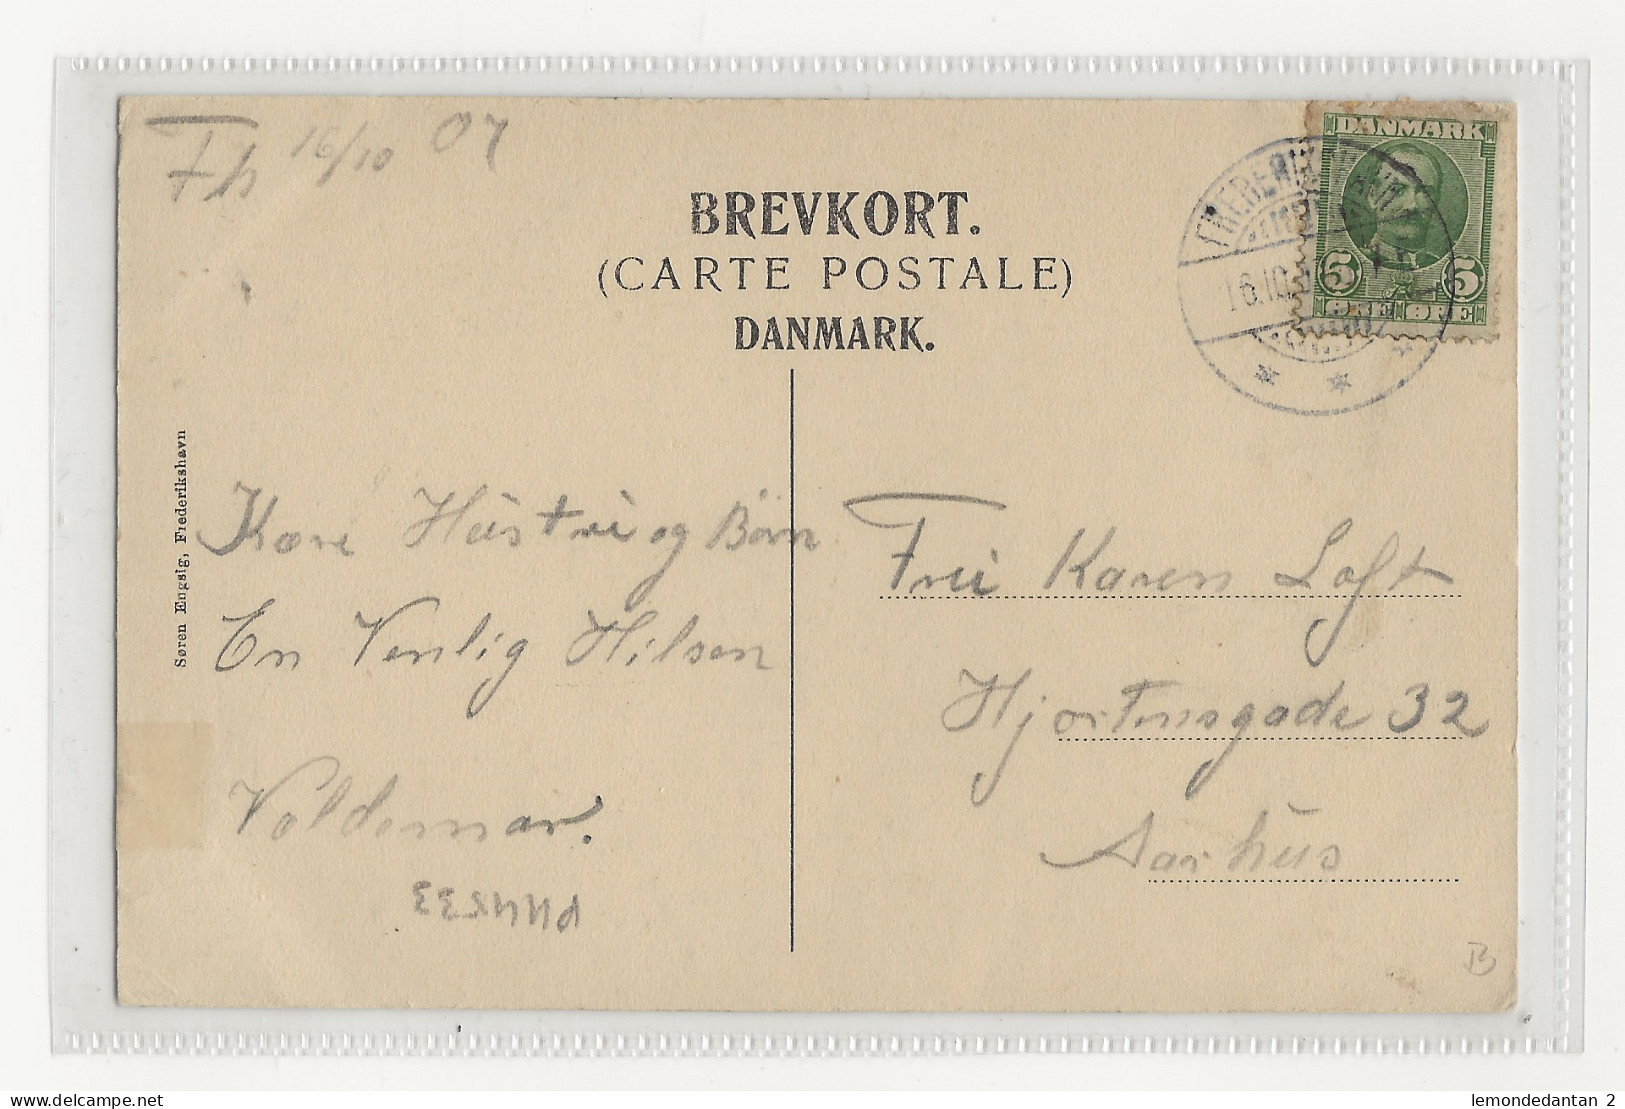 Fh 16/10 07
BREVKORT.
(CARTE POSTALE)
DANMARK.
DANMARK
5 5
ØRE ØRE
FREDERIKSHAVN
16.10.
Søren Engsig, Frederikshavn
Kære Hustru og Børn
En Venlig Hilsen
Valdemar.
Fru Karen Loft
Hjortensgade 32
Aarhus
B
delcampe.net
lemondedantan 2